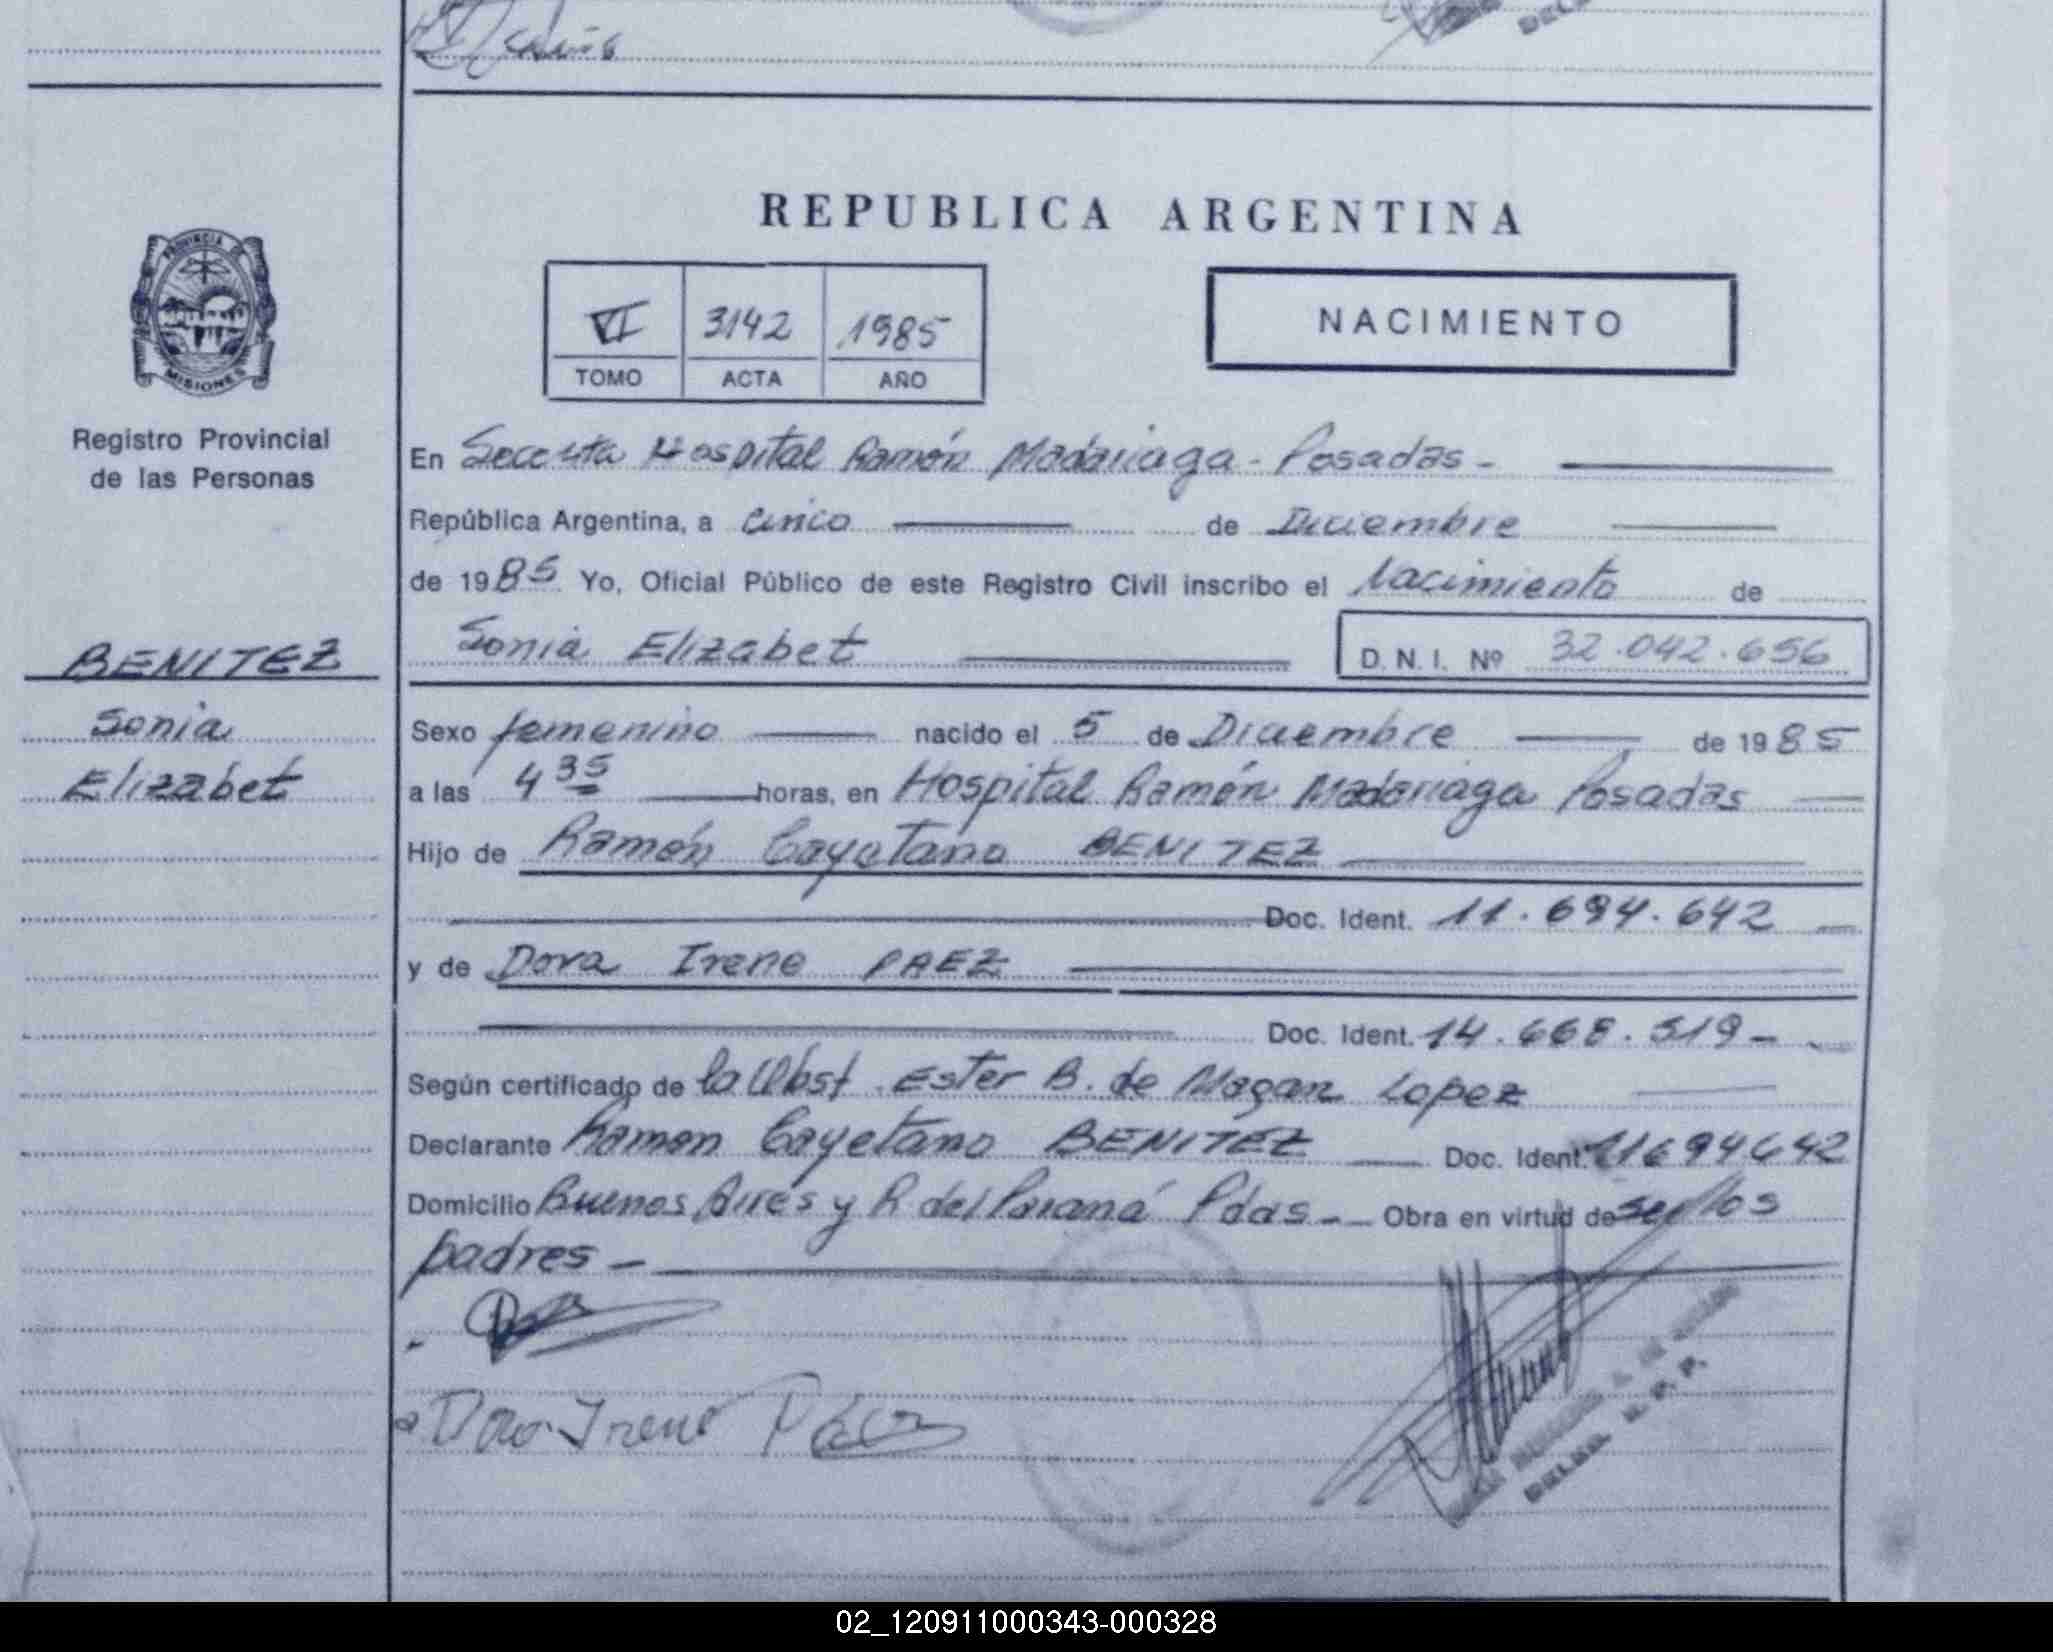 REPUBLICA ARGENTINA
PROVINCIA DE
MISIONES
Registro Provincial
de las Personas
BENITEZ
Sonia
Elizabet
VI 3142 1985
TOMO ACTA AÑO
NACIMIENTO
En Hospital Ramón Madariaga - Posadas -
República Argentina, a cinco de Diciembre
de 1985 Yo, Oficial Público de este Registro Civil inscribo el Nacimiento de
Sonia Elizabet
D. N. I. Nº 32.042.656
Sexo femenino nacido el 5 de Diciembre de 1985
a las 4 35 horas, en Hospital Ramón Madariaga Posadas
Hijo de Ramón Cayetano BENITEZ
Doc. Ident. 11.694.642
y de Dora Irene PAEZ
Doc. Ident. 14.668.519 -
Según certificado de la Obst. Ester B. de Magan Lopez
Declarante Ramon Cayetano BENITEZ Doc. Ident. 11694642
Domicilio Buenos Aires y R del Paraná Pdas - Obra en virtud de ser los
padres -
Dora Irene Páez
02_120911000343-000328